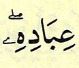 عِبَادِهِۦۖ